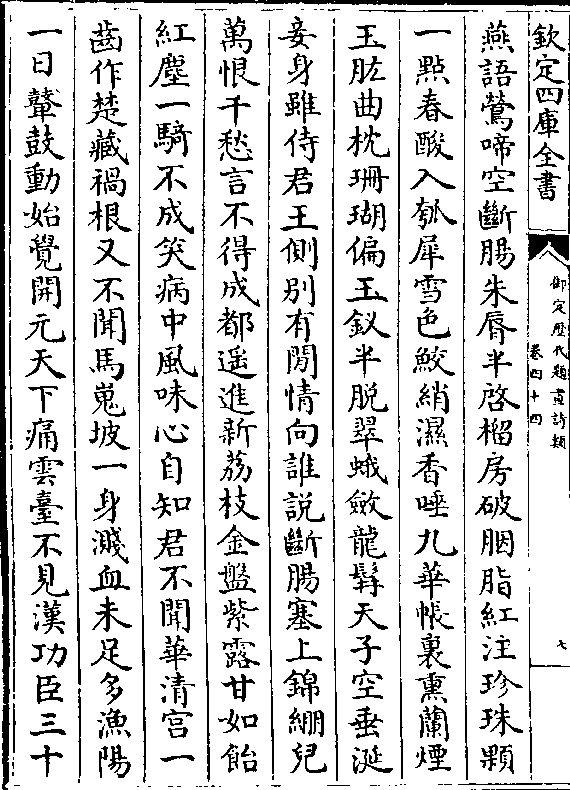 欽定四庫全書
御定歷代題畫詩類
卷四十四
七
燕語鶯啼空斷腸朱唇半啓榴房破胭脂紅注珍珠顆
一點春酸入瓠犀雪色鮫綃濕香唾九華帳裏熏蘭煙
玉肱曲枕珊瑚偏玉釵半脱翠蛾斂龍髯天子空垂涎
妾身雖侍君王側别有閒情向誰説斷腸塞上錦綳兒
萬恨千愁言不得成都遥進新荔枝金盤紫露甘如飴
紅塵一騎不成笑病中風味心自知君不聞華清宫一
齒作楚藏禍根又不聞馬嵬坡一身濺血未足多漁陽
一日鼙鼓動始覺開元天下痛雲臺不見漢功臣三十